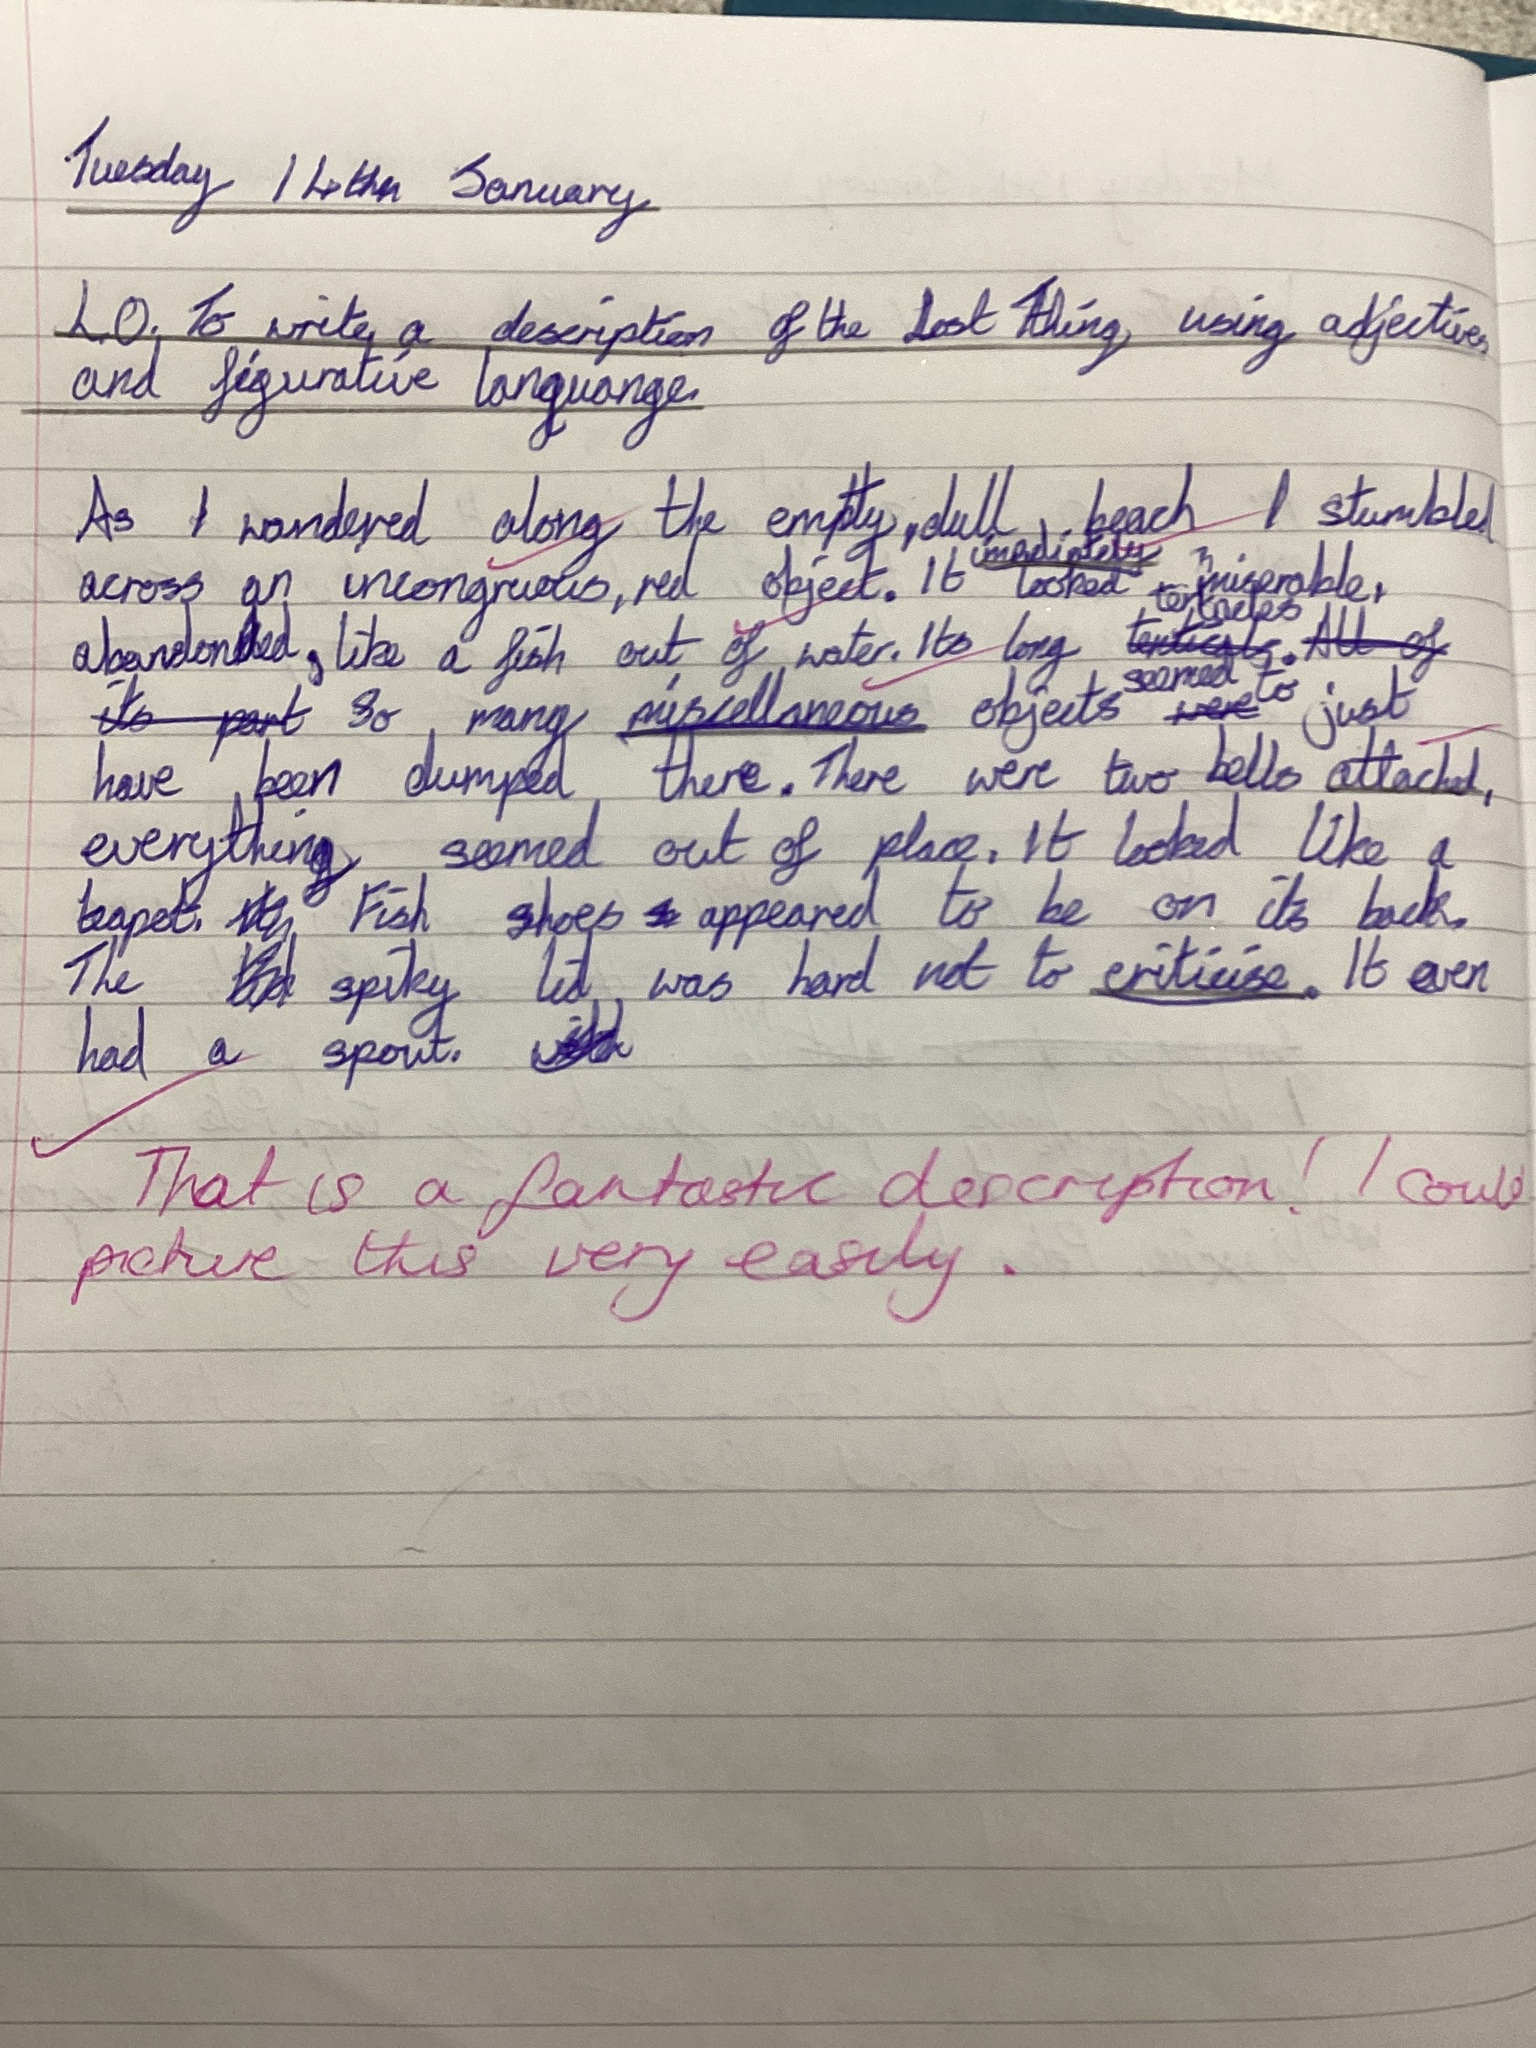 Tuesday 14th January
L.O. To write a description of the Lost Thing, using adjectives
and figurative languange.
As I wandered along the empty, dull, beach I stumbled
across an uncongruous, red object. It imediately looked miserable,
abandonded, like a fish out of water. Its long tenticals. tentacles All of
its part So many miscellaneous objects were seemed to just
have been dumped there. There were two bells attached,
everything seemed out of place. It looked like a
teapot. Fish shoes appeared to be on its back.
The spiky lid was hard not to criticise. It even
had a spout.
That is a fantastic description! I could
picture this very easily.